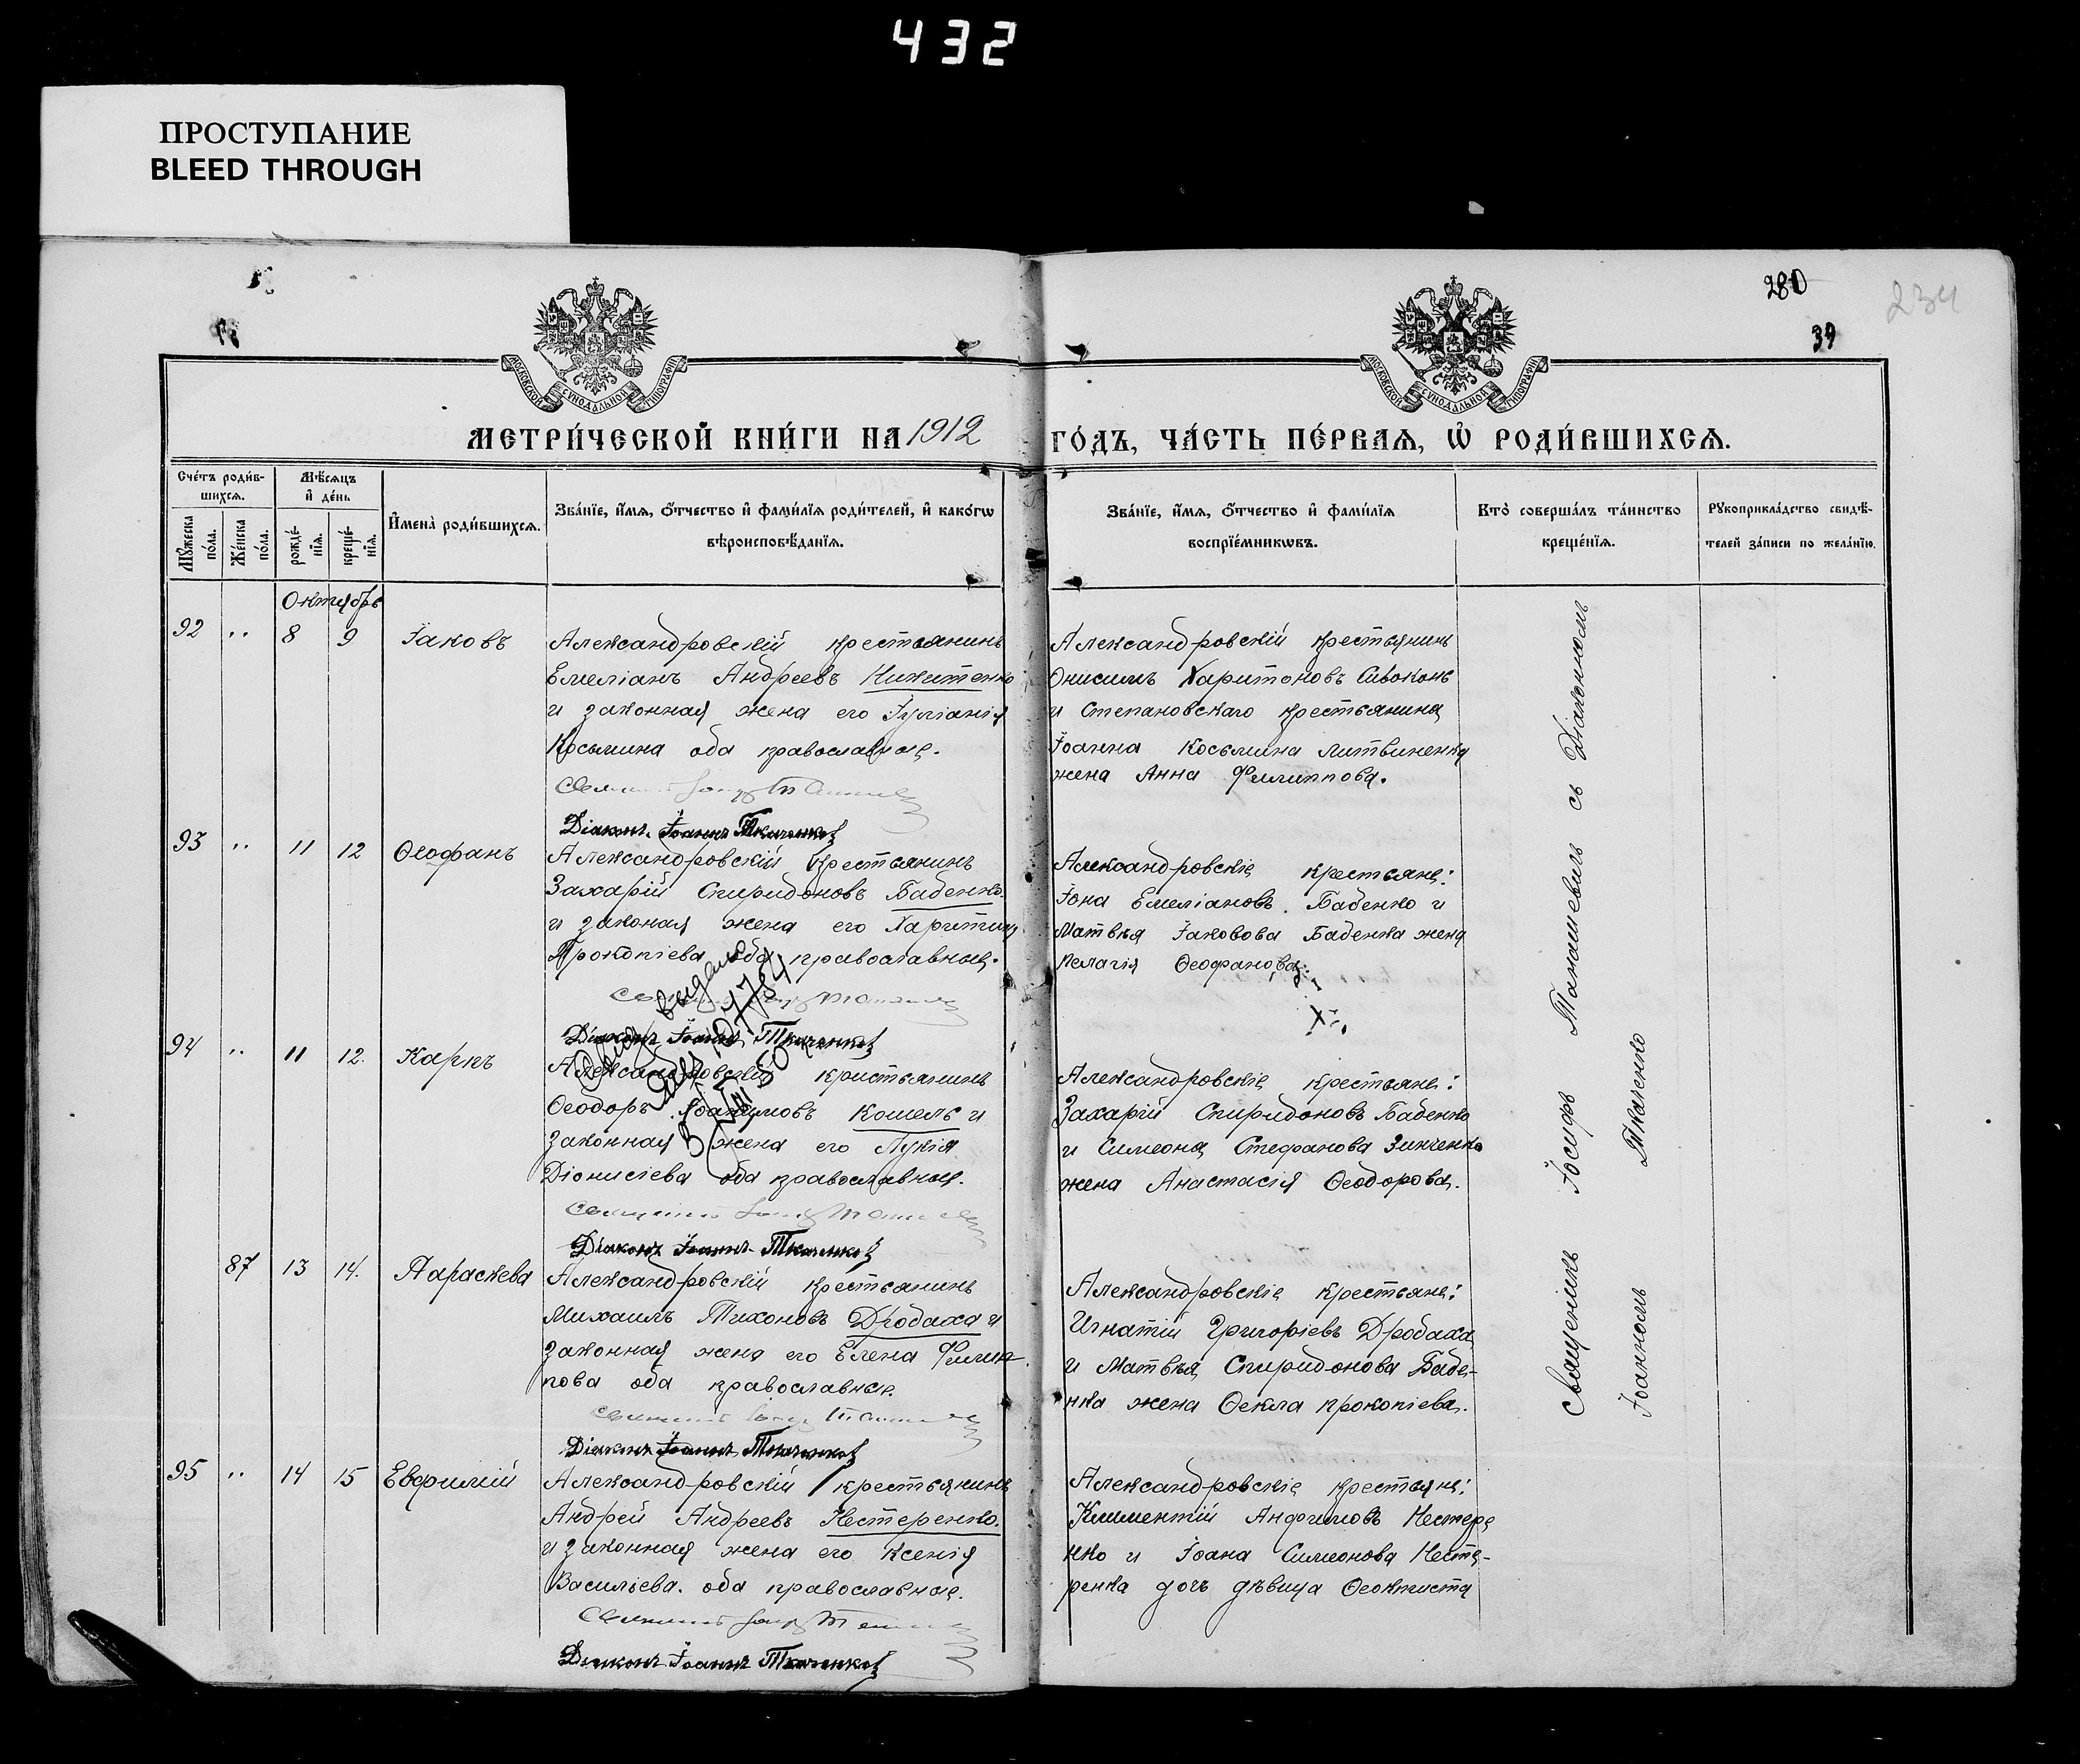 432
ПРОСТУПАНИЕ
BLEED THROUGH
280
39
234
МОСКОВСКОЙ СѴНОДАЛЬНОЙ ТИПОГРАФІИ
МОСКОВСКОЙ СѴНОДАЛЬНОЙ ТИПОГРАФІИ
МЕТРИ́ЧЕСКОЙ КНИ́ГИ НА 1912 ГО́ДЪ, ЧА́СТЬ ПЕ́РВАѦ, Ѡ РОДИ́ВШИХСѦ.
Сче́тъ роди́в-
шихсѧ.
Мѣ́сѧцъ
и҆ де́нь
Мꙋ́жеска по́ла.
Же́нска по́ла.
рожде́-
нїѧ.
креще́-
нїѧ.
И҆мена̀ роди́вшихсѧ.
Зва́нїе, и҆́мѧ, ѻ҆́тчество и҆ фами́лїѧ роди́телей, и҆ како́гѡ
вѣроисповѣ́данїѧ.
Зва́нїе, и҆́мѧ, ѻ҆́тчество и҆ фами́лїѧ
воспрїе́мникѡвъ.
Кто̀ соверша́лъ та́инство
креще́нїѧ.
Рꙋкоприкла́дство свидѣ́-
телей за́писи по жела́нїю.
Октябрь
92 " 8 9 Іаковъ
Александровскій крестьянинъ
Емеліанъ Андреевъ Никитенко
и законная жена его Іуліанія
Косьмина оба православные.
Діаконъ Іоаннъ Ткаченко
Александровскій крестьянинъ
Онисимъ Харитоновъ Сивоконь
и Степановскаго крестьянина
Іоанна Косьмина Литвиненка
жена Анна Филиппова.
93 " 11 12 Ѳеофанъ
Александровскій крестьянинъ
Захарій Спиридоновъ Баденко
и законая жена его Харитина
Прокопіева оба православные.
Діаконъ Іоаннъ Ткаченко
Александровскіе крестьяне:
Іона Емеліановъ Баденко и
Матвѣя Іаковова Баденка жена
Пелагія Ѳеофанова.
94 " 11 12. Карпъ
Александровскій кристьянинъ
Ѳеодоръ Іоакимовъ Кошель и
законная жена его Лукія
Діонисіева оба православные.
Діаконъ Іоаннъ Ткаченко
Александровскіе крестьяне:
Захарій Спиридоновъ Баденко
и Симеона Стефанова Зинченка
жена Анастасія Ѳеодорова.
87 13 14. Параскева
Александровскій крестьянинъ
Михаилъ Тихоновъ Дробаха и
законная жена его Елена Филип-
пова оба православные.
Діаконъ Іоаннъ Ткаченко
Александровскіе крестьяне:
Игнатій Григоріевъ Дробаха
и Матвѣя Спиридонова Баде-
нка жена Ѳекла Прокопіева.
95 " 14 15 Евфимій
Александровскій крестьянинъ
Андрей Андреевъ Нестеренко
и законная жена его Ксенія
Васильева. оба православные.
Діаконъ Іоаннъ Ткаченко
Александровскіе крестьяне:
Климентій Анфимовъ Нестере
нко и Іоана Симеонова Несте-
ренка дочь дѣвица Ѳеоктиста
Священникъ Іосифъ Танашевичъ съ Діакономъ
Іоанномъ Ткаченко